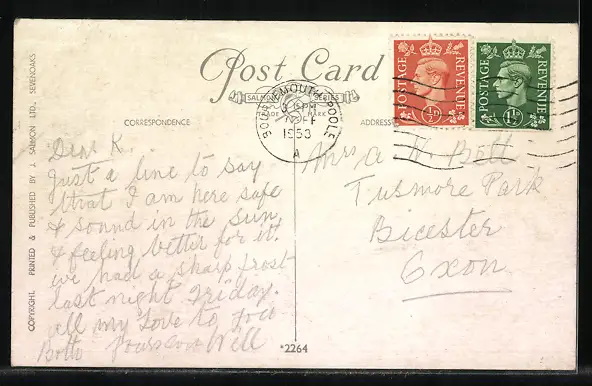 Post Card
SALMON SERIES
TRADE MARK
CORRESPONDENCE
ADDRESS
COPYRIGHT. PRINTED & PUBLISHED BY J. SALMON LTD., SEVENOAKS
BOURNEMOUTH POOLE
3 15 PM
1953
A
POSTAGE REVENUE
½D
POSTAGE REVENUE
1½D
Dear K.
Just a line to say
that I am here safe
& sound in the sun,
& feeling better for it.
we had a sharp frost
last night Friday.
all my love to you
Both Will
Mrs A W Bott
Tusmore Park
Bicester
Oxon
*2264